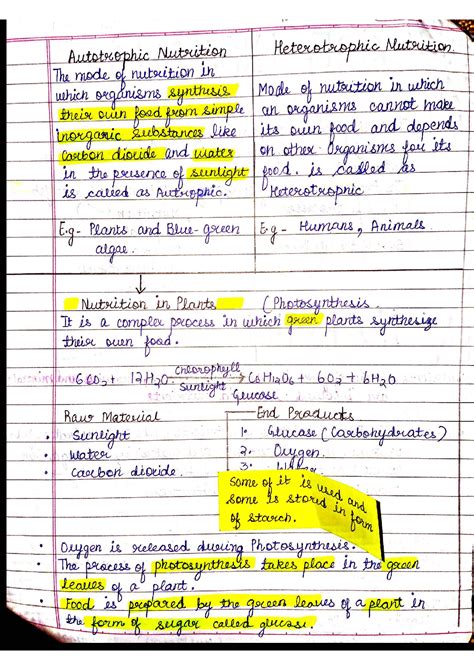 Autotrophic Nutrition
The mode of nutrition in
which organisms synthesis
their own food from simple
inorganic substances like
carbon dioxide and water
in the presence of sunlight
is called as Autrophic.
E.g- Plants and Blue-green
algae.
Heterotrophic Nutrition
Mode of nutrition in which
an organisms cannot make
its own food and depends
on other organisms for its
food. is called as
Heterotrophic
E.g - Humans, Animals
Nutrition in Plants (Photosynthesis
It is a complex process in which green plants synthesize
their own food.
6CO2 + 12H2O Chlorophyll Sunlight → C6H12O6 + 6O2 + 6H2O
Glucose
Raw Material
• Sunlight
• Water
• Carbon dioxide
End Products
1. Glucose (Carbohydrates)
2. Oxygen
3.
Some of it is used and
some is stored in form
of starch.
• Oxygen is released during Photosynthesis.
• The process of photosynthesis takes place in the green
leaves of a plant.
• Food is prepared by the green leaves of a plant in
the form of sugar called glucose.